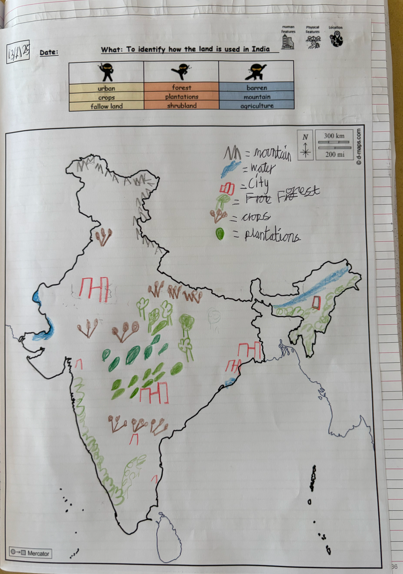 Human Features
Physical Features
Location
Date:
What: To identify how the land is used in India
urban forest barren
crops plantations mountain
fallow land shrubland agriculture
N
300 km
200 mi
© d-maps.com
= mountain
= water
= City
= Forest
= crops
= plantations
Mercator